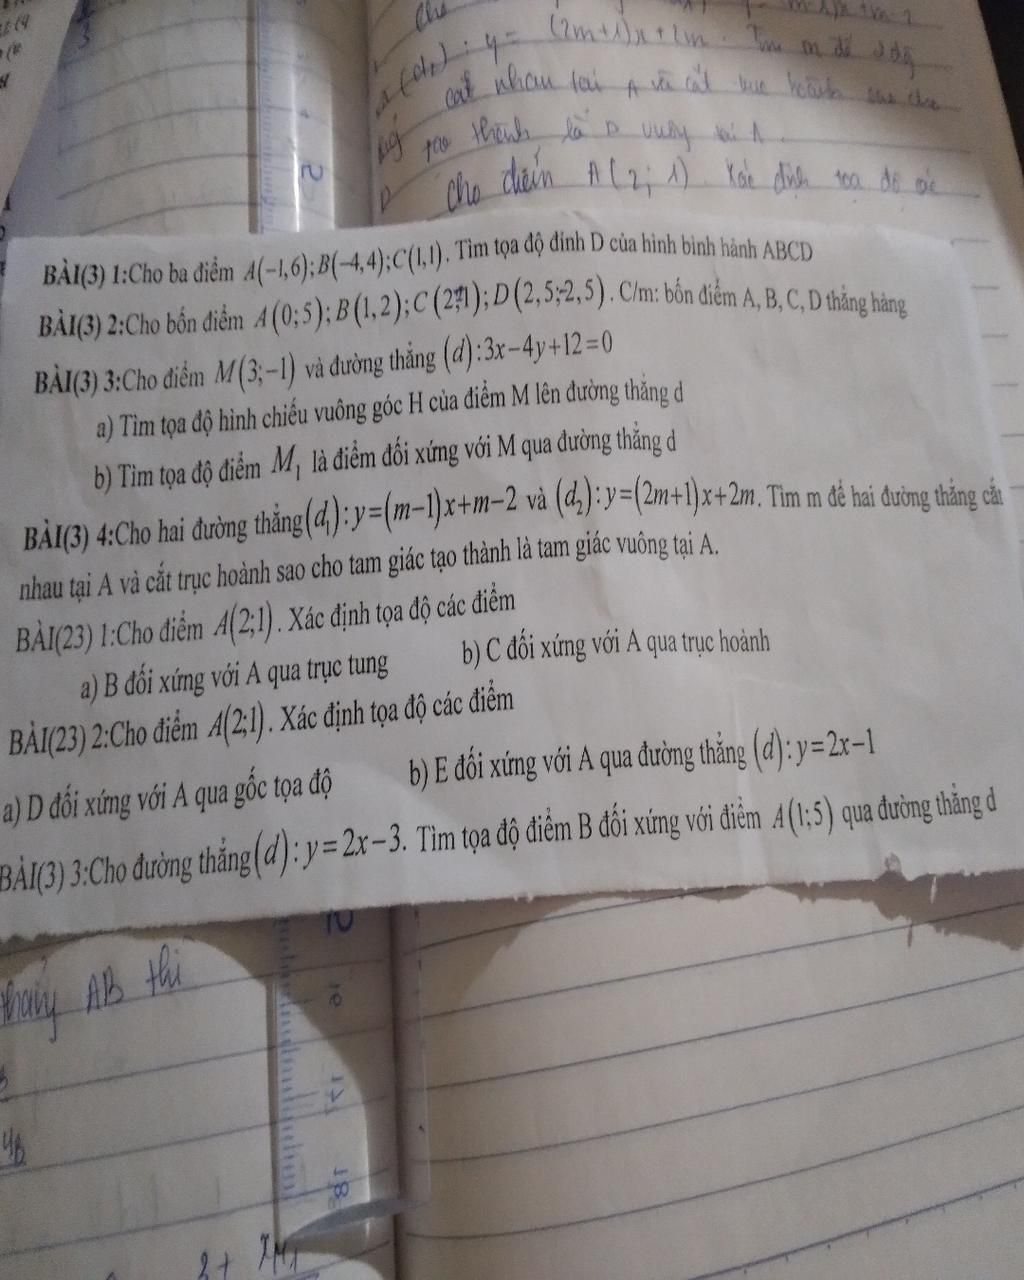 Cho
y = (2m+1)x + 2m . Tìm m để 2 đg
cắt nhau tại A và cắt trục hoành sao cho
tạo thành là Δ vuông tại A.
Cho điểm A(2; 1) Xác định tọa độ các
BÀI(3) 1:Cho ba điểm A(−1,6);B(−4,4);C(1,1). Tìm tọa độ đỉnh D của hình bình hành ABCD
BÀI(3) 2:Cho bốn điểm A(0;5);B(1,2);C(2;-1);D(2,5;-2,5). C/m: bốn điểm A, B, C, D thẳng hàng
BÀI(3) 3:Cho điểm M(3;−1) và đường thẳng (d):3x−4y+12=0
a) Tìm tọa độ hình chiếu vuông góc H của điểm M lên đường thẳng d
b) Tìm tọa độ điểm M₁ là điểm đối xứng với M qua đường thẳng d
BÀI(3) 4:Cho hai đường thẳng(d₁):y=(m−1)x+m−2 và (d₂):y=(2m+1)x+2m. Tìm m để hai đường thẳng cắt
nhau tại A và cắt trục hoành sao cho tam giác tạo thành là tam giác vuông tại A.
BÀI(23) 1:Cho điểm A(2;1). Xác định tọa độ các điểm
a) B đối xứng với A qua trục tung b) C đối xứng với A qua trục hoành
BÀI(23) 2:Cho điểm A(2;1). Xác định tọa độ các điểm
a) D đối xứng với A qua gốc tọa độ b) E đối xứng với A qua đường thẳng (d):y=2x−1
BÀI(3) 3:Cho đường thẳng(d):y=2x−3. Tìm tọa độ điểm B đối xứng với điểm A(1;5) qua đường thẳng d
AB thì